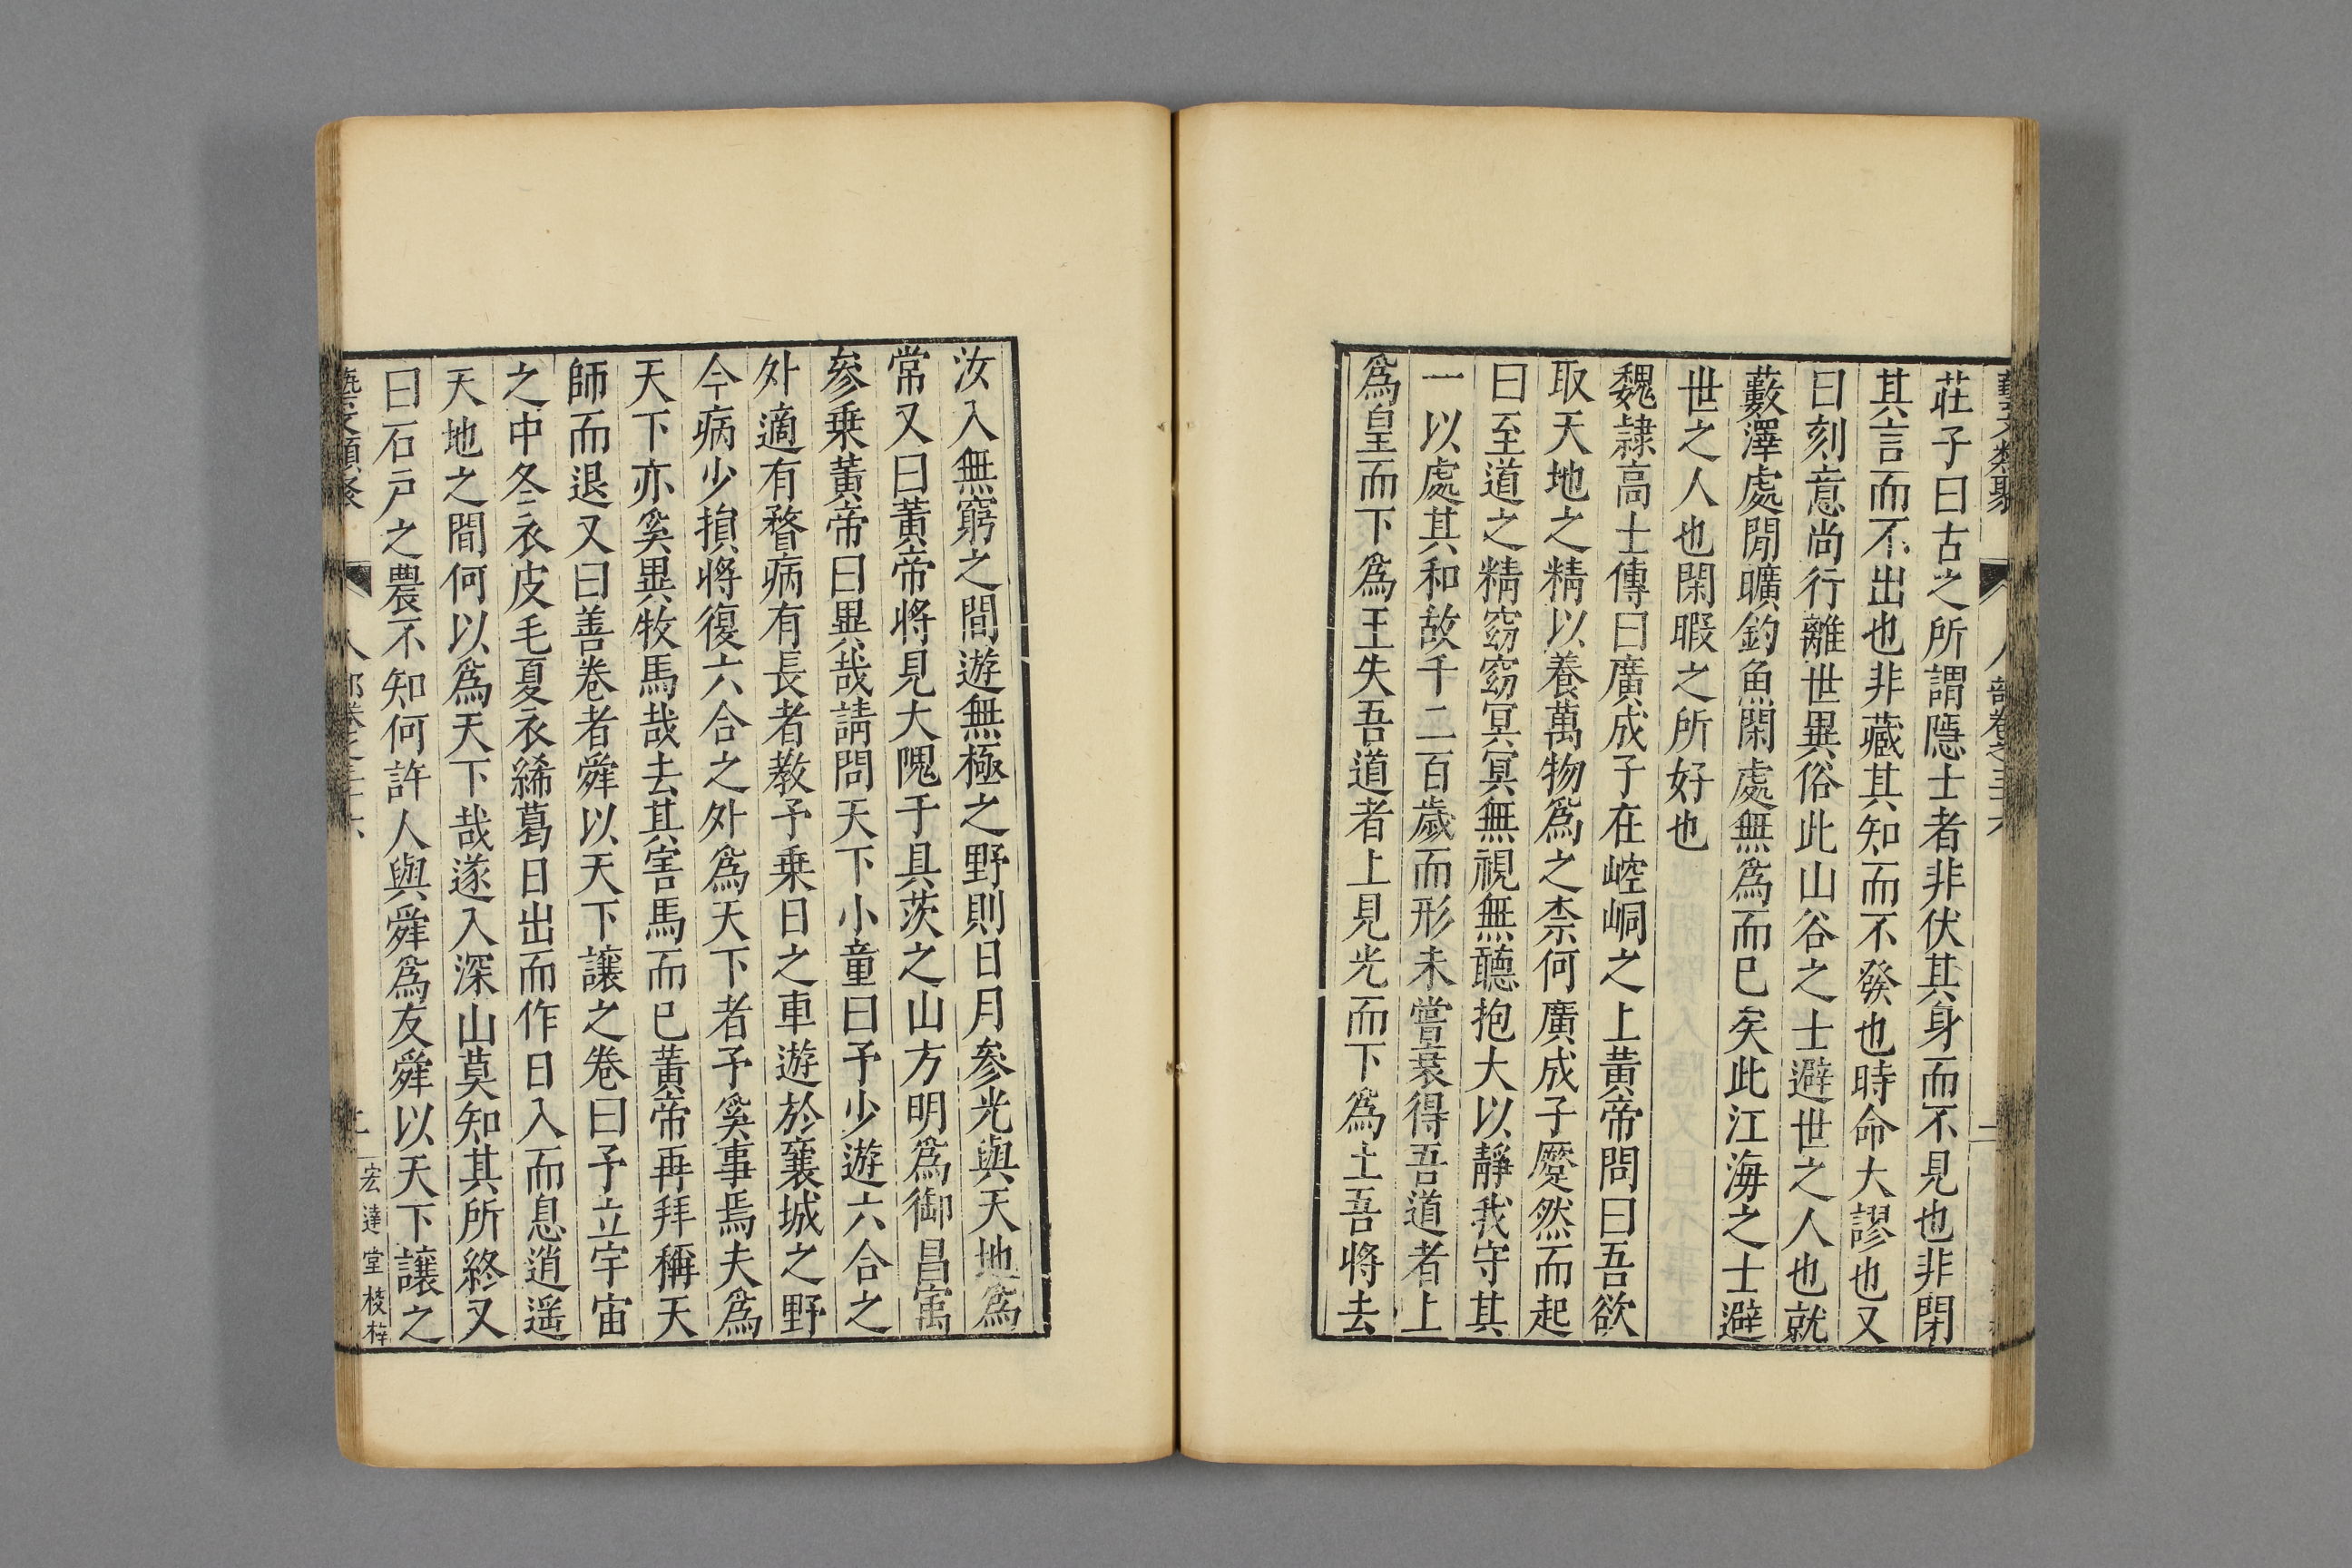 藝文類聚 人部卷之三十六 二
莊子曰古之所謂隱士者非伏其身而不見也非閉
其言而不出也非藏其知而不發也時命大謬也又
曰刻意尚行離世異俗此山谷之士避世之人也就
藪澤處閒曠釣魚閑處無為而已矣此江海之士避
世之人也閑暇之所好也
魏隷高士傳曰廣成子在崆峒之上黃帝問曰吾欲
取天地之精以養萬物為之柰何廣成子蹷然而起
曰至道之精窈窈冥冥無視無聽抱大以靜我守其
一以處其和故千二百歲而形未嘗衰得吾道者上
為皇而下為王失吾道者上見光而下為土吾將去
汝入無窮之間遊無極之野則日月參光與天地為
常又曰黃帝將見大隗于具茨之山方明為御昌㝢
參乗黃帝曰異哉請問天下小童曰予少遊六合之
外適有瞀病有長者教予乗日之車遊於襄城之野
今病少損將復六合之外為天下者予奚事焉夫為
天下亦奚異牧馬哉去其害馬而已黃帝再拜稱天
師而退又曰善卷者舜以天下讓之卷曰予立宇宙
之中冬衣皮毛夏衣絺葛日出而作日入而息逍遥
天地之間何以為天下哉遂入深山莫知其所終又
曰石戸之農不知何許人與舜為友舜以天下讓之
宏達堂校梓